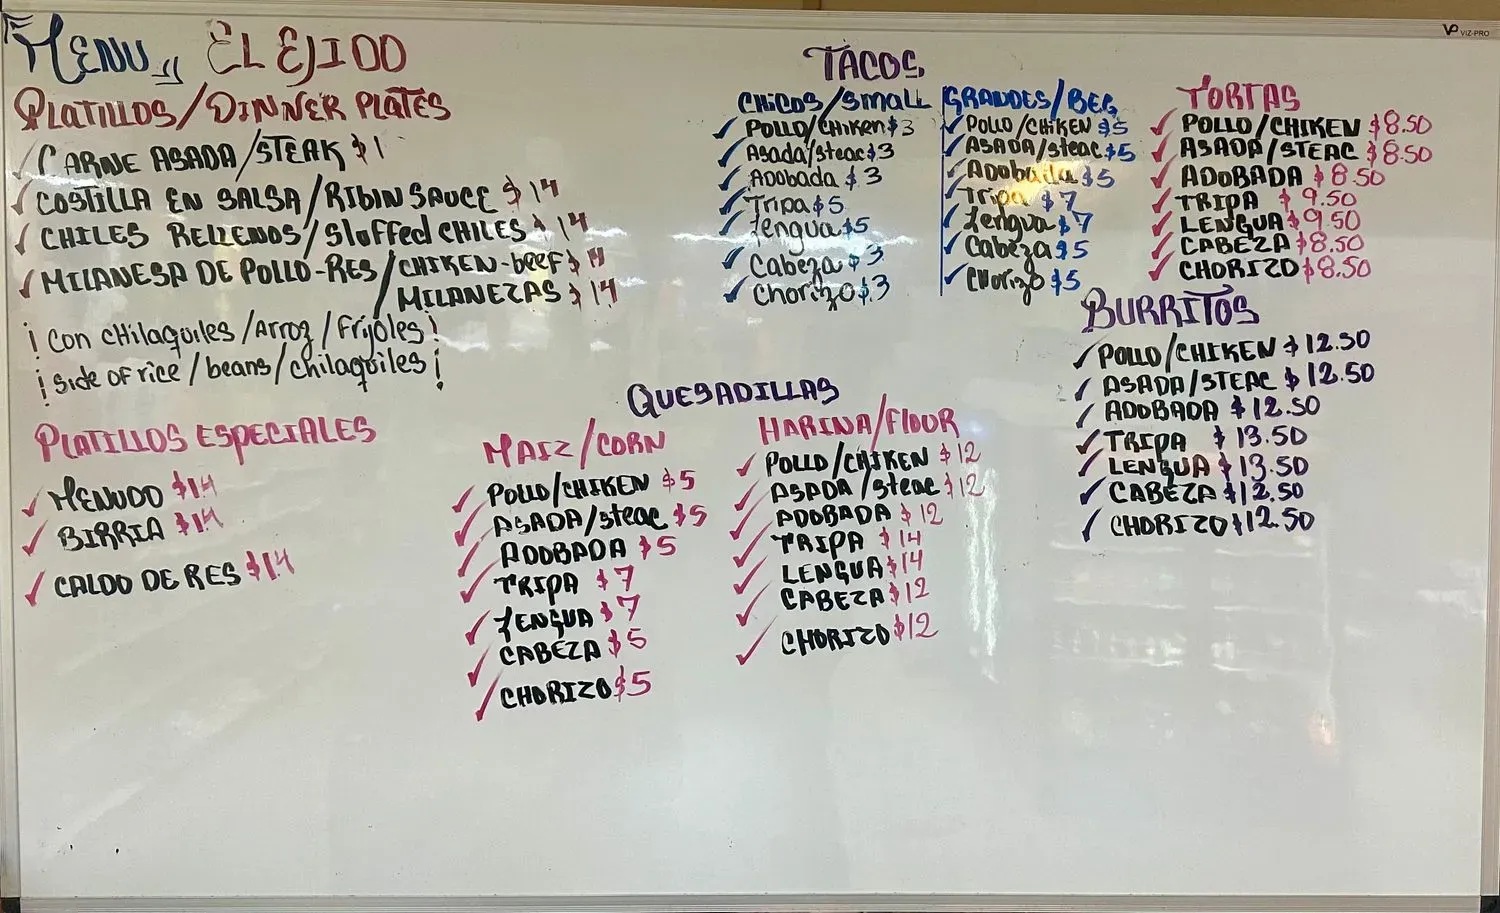 MENU EL EJIDO
PLATILLOS/DINNER PLATES
CARNE ASADA/STEAK $1
COSTILLA EN SALSA/RIBIN SAUCE $14
CHILES RELLENOS/Stuffed CHILES $14
MILANESA DE POLLO-RES/CHIKEN-beef $14
MILANEZAS $14
¡Con CHilaquiles/Arroz/Frijoles!
¡side of rice/beans/chilaquiles!
PLATILLOS ESPECIALES
MENUDO $14
BIRRIA $14
CALDO DE RES $14
TACOS
CHICOS/Small
POLLO/CHiken $3
Asada/steac $3
Adobada $3
Tripa $5
Lengua $5
Cabeza $3
Chorizo $3
GRANDES/BEG
POLLO/CHiKEN $5
ASADA/steac $5
Adobada $5
Tripa $7
Lengua $7
Cabeza $5
CHorizo $5
TORTAS
POLLO/CHIKEN $8.50
ASADA/STEAC $8.50
ADOBADA $8.50
TRIPA $9.50
LENGUA $9.50
CABEZA $8.50
CHORIZO $8.50
BURRITOS
POLLO/CHIKEN $12.50
ASADA/STEAC $12.50
ADOBADA $12.50
TRIPA $13.50
LENGUA $13.50
CABEZA $12.50
CHORIZO $12.50
QUESADILLAS
MAIZ/CORN
POLLO/CHIKEN $5
ASADA/steac $5
ADOBADA $5
TRIPA $7
LENGUA $7
CABEZA $5
CHORIZO $5
HARINA/FlOUR
POLLO/CHIKEN $12
ASADA/steac $12
ADOBADA $12
TRIPA $14
LENGUA $14
CABEZA $12
CHORIZO $12
VIZ-PRO